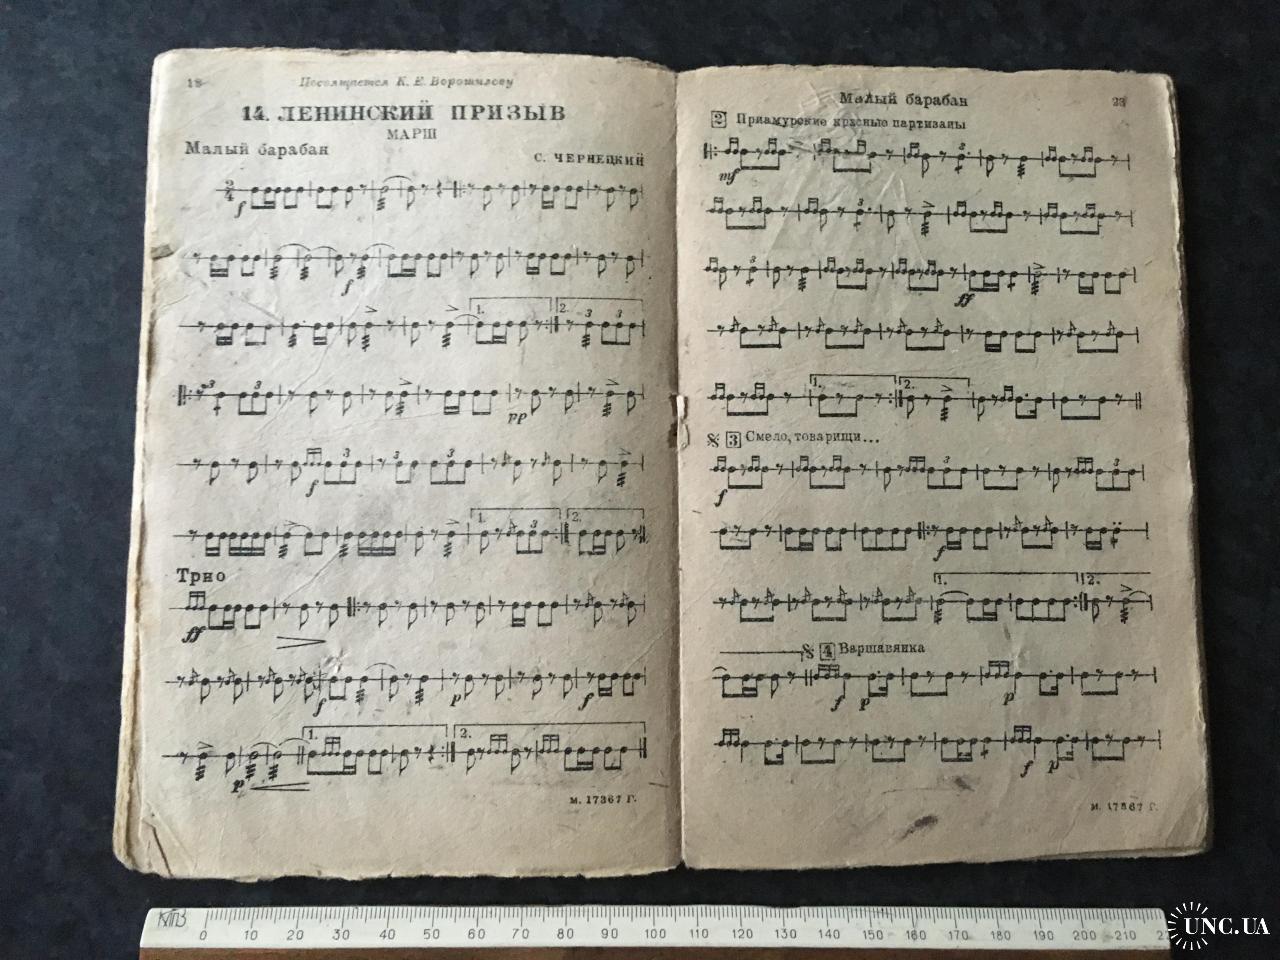 18
Посвящается К. Е. Ворошилову
14. ЛЕНИНСКИЙ ПРИЗЫВ
МАРШ
Малый барабан
С. ЧЕРНЕЦКИЙ
2/4
f
f
1. 2. 3 3
3 3 pp
f 3 3 3
1. 3 2.
Трио
ff
f p f
p 1. 2.
м. 17367 Г.
Малый барабан
23
2 Приамурские красные партизаны
mf 3
3
3 ff
1. 2.
3 Смело, товарищи...
f 3 3
f
1. 2.
4 Варшавянка
f p p
f p
м. 17367 Г.
КПЗ 0 10 20 30 40 50 60 70 80 90 100 110 120 130 140 150 160 170 180 190 200 210
UNC.UA